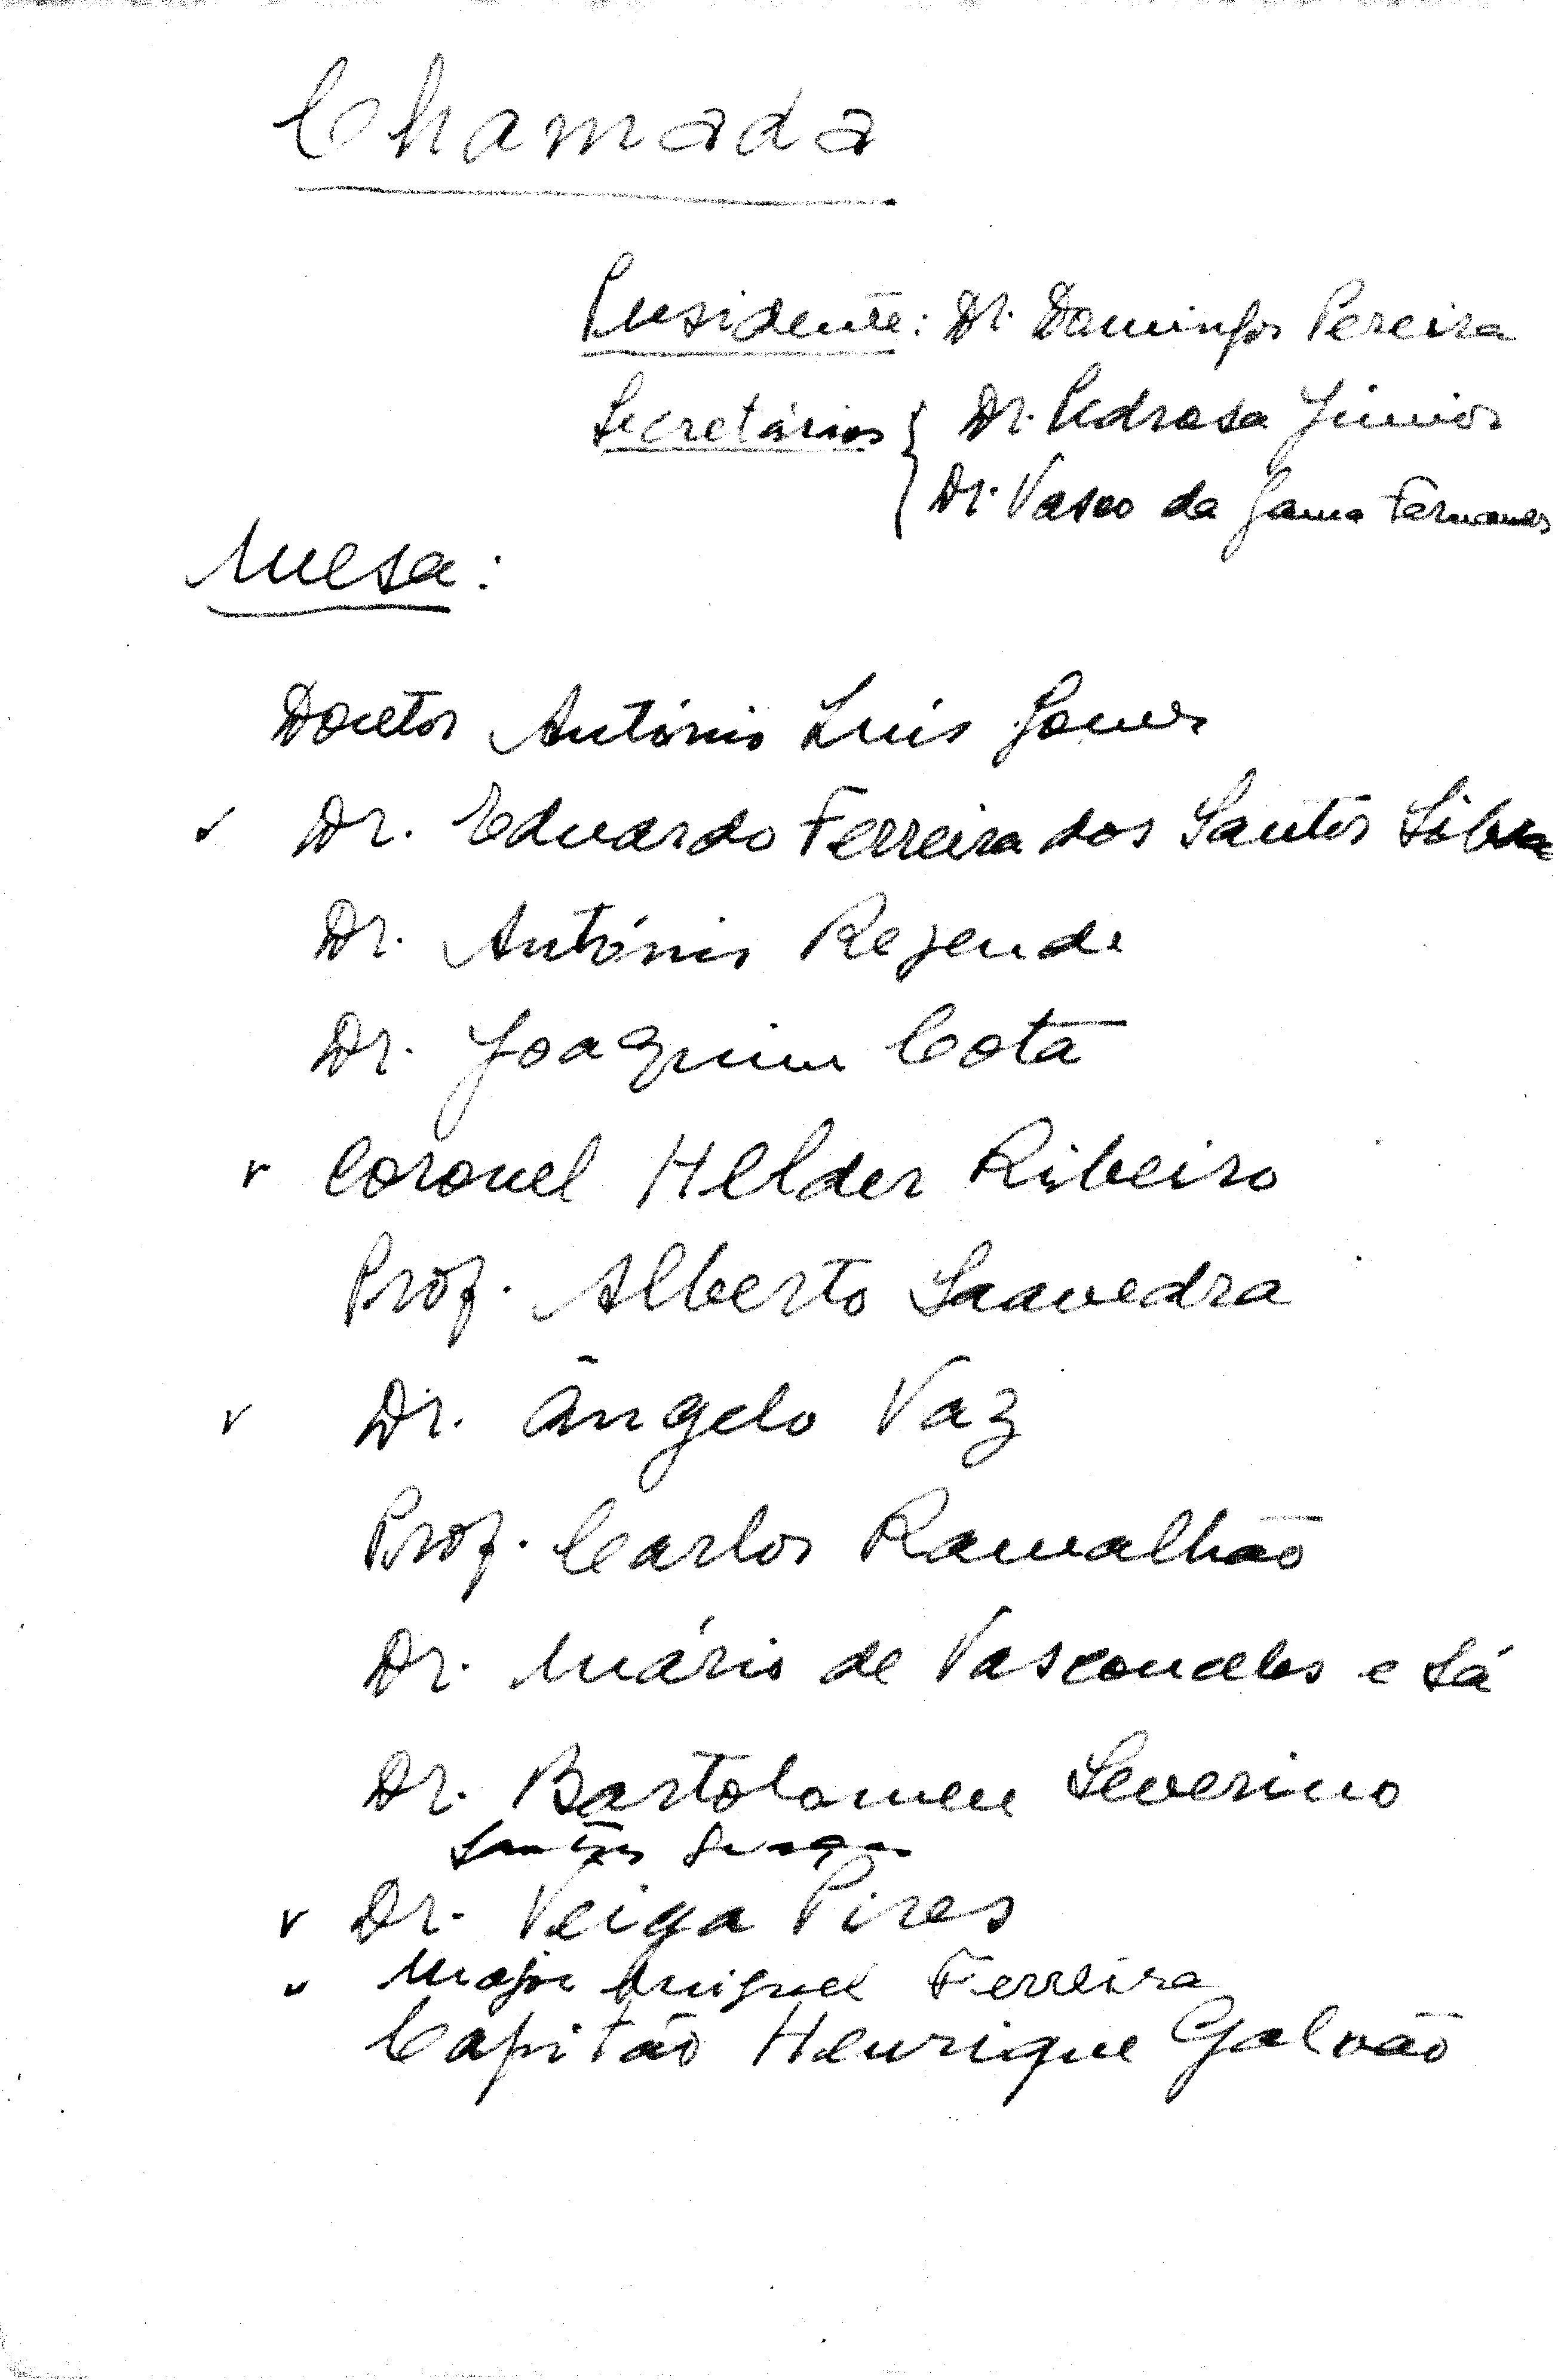 Chamada
Presidente: Dr. Domingos Pereira
Secretários { Dr. Pedrosa Júnior
Dr. Vasco da Gama Fernandes
Mesa:
Doutor António Luís Gomes
✓ Dr. Eduardo Ferreira dos Santos Silva
Dr. António Rezende
Dr. Joaquim Cotta
v Coronel Helder Ribeiro
Prof. Alberto Saavedra
v Dr. Ângelo Vaz
Prof. Carlos Ramalhão
Dr. Mário de Vasconcelos e Sá
Dr. Bartolomeu Severino
Santos
v Dr. Veiga Pires
v Major Miguel Ferreira
Capitão Henrique Galvão